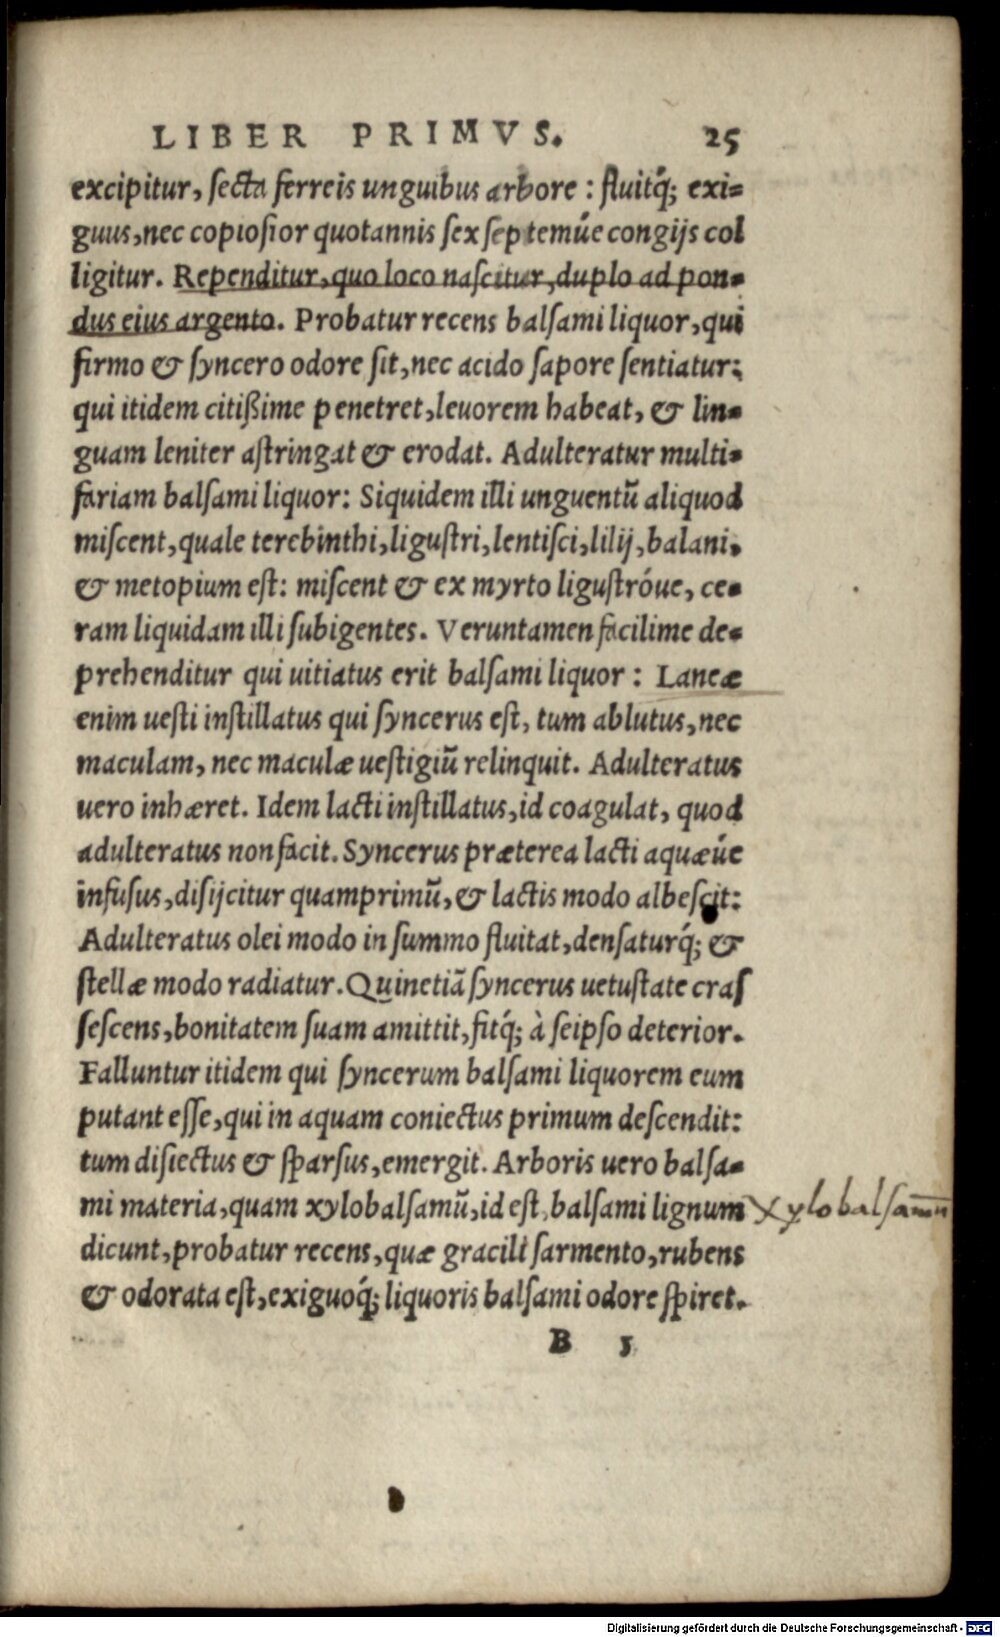 LIBER PRIMVS. 25
excipitur, ſecta ferreis unguibus arbore : fluitq́; exi=
guus, nec copioſior quotannis ſex ſeptemúe congijs col
ligitur. Rependitur, quo loco naſcitur, duplo ad pon=
dus eius argento. Probatur recens balſami liquor, qui
firmo & ſyncero odore ſit, nec acido ſapore ſentiatur:
qui itidem citißime penetret, leuorem habeat, & lin=
guam leniter aſtringat & erodat. Adulteratur multi=
fariam balſami liquor: Siquidem illi unguentũ aliquod
miſcent, quale terebinthi, liguſtri, lentiſci, lilij, balani,
& metopium eſt: miſcent & ex myrto liguſtróue, ce=
ram liquidam illi ſubigentes. Veruntamen facilime de=
prehenditur qui uitiatus erit balſami liquor : Laneæ
enim ueſti inſtillatus qui ſyncerus eſt, tum ablutus, nec
maculam, nec maculæ ueſtigiũ relinquit. Adulteratus
uero inhæret. Idem lacti inſtillatus, id coagulat, quod
adulteratus non facit. Syncerus præterea lacti aquæúe
infuſus, diſijcitur quamprimũ, & lactis modo albeſcit:
Adulteratus olei modo in ſummo fluitat, denſaturq́; &
ſtellæ modo radiatur. Quinetiã ſyncerus uetuſtate craſ
ſeſcens, bonitatem ſuam amittit, fitq́; à ſeipſo deterior.
Falluntur itidem qui ſyncerum balſami liquorem eum
putant eſſe, qui in aquam coniectus primum deſcendit:
tum diſiectus & ſparſus, emergit. Arboris uero balſa=
mi materia, quam xylobalſamũ, id eſt, balſami lignum
Xylobalſamũ
dicunt, probatur recens, quæ gracili ſarmento, rubens
& odorata eſt, exiguoq́; liquoris balſami odore ſpiret.
B 5
Digitalisierung gefördert durch die Deutsche Forschungsgemeinschaft - DFG